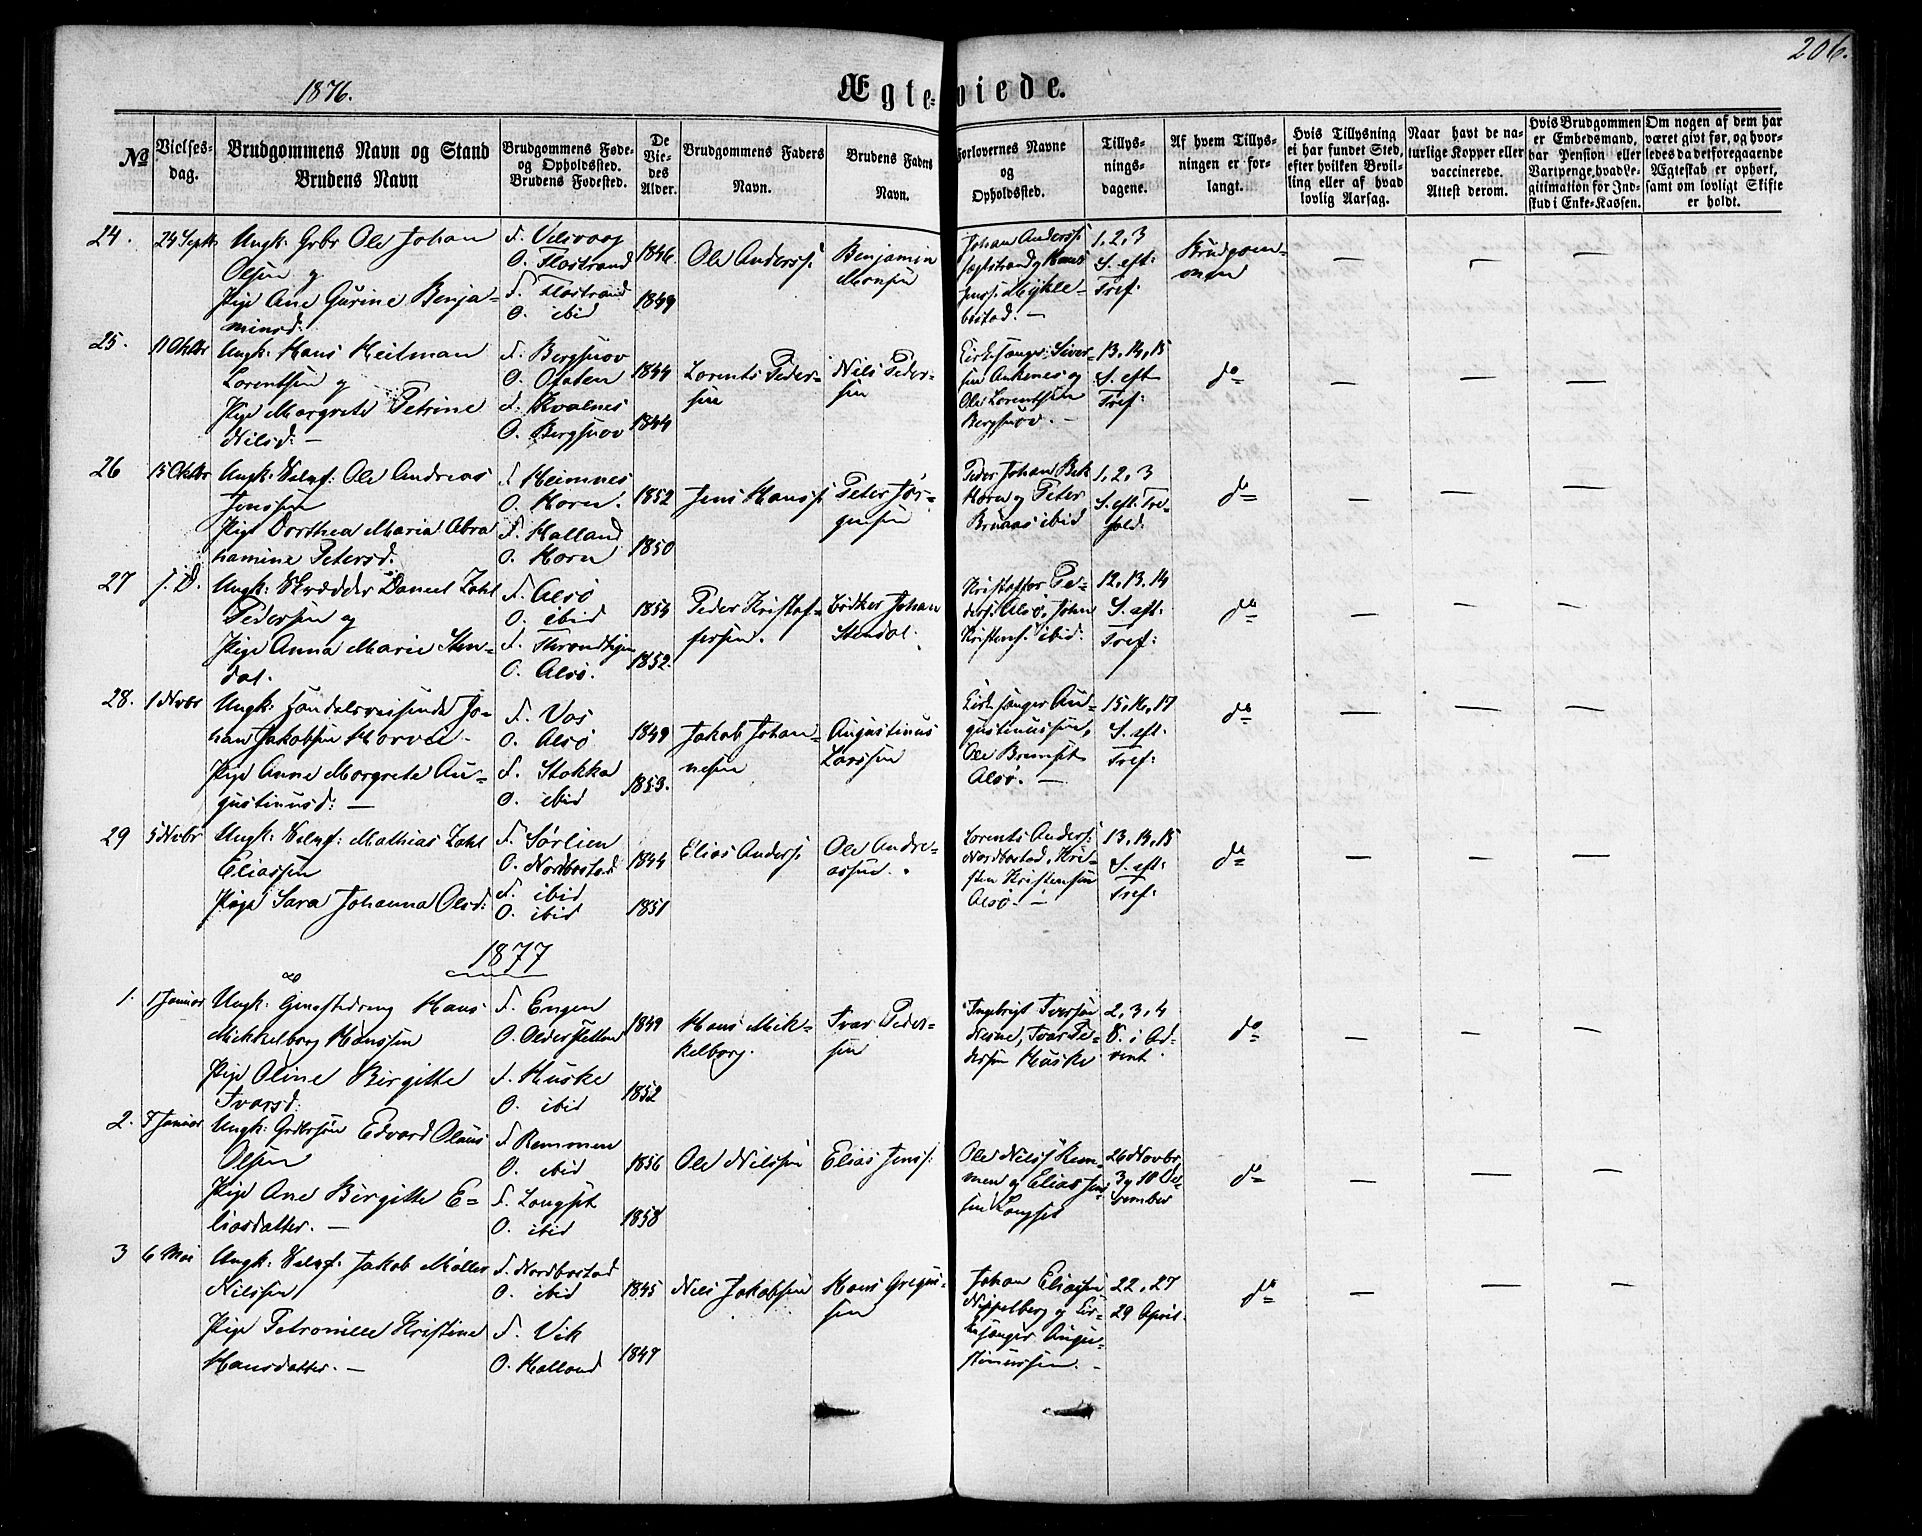 206.
1876.
Ægteviede.
No
Vielses-
dag.
Brudgommens Navn og Stand
Brudens Navn
Brudgommens Føde-
og Opholdssted.
Brudens Fødested.
De
Vie-
des
Alder.
Brudgommens Faders
Navn.
Brudens Faders
Navn.
Forlovernes Navne
og
Opholdssted.
Tillys-
nings-
dagene.
Af hvem Tillys-
ningen er for-
langt.
Hvis Tillysning
ei har fundet Sted,
efter hvilken Bevil-
ling eller af hvad
lovlig Aarsag.
Naar havt de na-
turlige Kopper eller
vaccinerede.
Attest derom.
Hvis Brudgommen
er Embedsmand,
har Pension eller
Vartpenge, hvad Le-
gitimation for Ind-
skud i Enke-Kassen.
Om nogen af dem har
været givt før, og hvor-
ledes da det foregaaende
Ægteskab er ophørt,
samt om lovligt Skifte
er holdt.
24.
24 Septb
Ungk: Grbr Ole Johan
Olsen og
Pige Ane Gurine Benja-
minsd:
F.
O. Flostrand
F. Flostrand
O. ibid
1846.
1849
Ole Anderss:
Benjamin
Monsen
Johan Anderss:
og Hans
Jenss: Mykle-
bostad. —
1, 2, 3
S. eft:
Tref:
Brudgom-
men
— — — —
25.
11 Oktbr
Ungk: Hans Heitman
Lorentsen og
Pige Margrete Petrine
Nilsd: —
F. Bergsnov
O. Ofoten
F. Kvalnes
O. Bergsnov
1844
1844
Lorents Peder-
sen
Nils Peder-
sen
Kirkesanger Siver-
sen Ankenes og
Ole Lorentsen
Bergsnov. —
13, 14, 15
S. eft
Tref:
do
— — —
26
15 Oktbr
Ungk: Selvf: Ole Andreas
Jenssen
Pige Dorthea Maria Abra
hamine Petersd:
F. Heimnes
O. Horn.
F. Halland
O. Horn
1852
1850
Jens Hanss:
Peter Jør-
gensen
Peder Johan Bek
Horn og Peter
Bruaas ibid
1, 2, 3
S. eft. Tre-
fold:
do
— — —
27
s. D.
Ungk: Skrædder Daniel Zahl
Pedersen og
Pige Anna Marie Sten-
dal.
F. Alsø
O. ibid
F. Throndhjem
O. Alsø.
1854
1852.
Peder Kristof-
fersen.
Bødker Johan
Stendal.
Kristoffer Pe-
ders: Alsø, John
Kristens: ibid:
12, 13, 14
S. eft:
Tref:
do
— — —
28.
1 Novbr
Ungk: Handelsreisende Jo-
han Jakobsen Horven
Pige Anne Margrete Au-
gustinusd: —
F. Vos
O. Alsø
F. Stokka
O. ibid
1849
1853.
Jakob Johan-
nesen
Augustinus
Larssen
Kirkesanger Au-
gustinussen,
Ole Brunset
Alsø. —
15, 16, 17
S. eft.
Tref:
do
— — —
29
5 Novbr
Ungk: Selvf: Mathias Zahl
Eliassen
Pige Sara Johanna Olsd:
F. Sørlien
O. Nordbostad
F. ibid
O. ibid
1844
1851
Elias Anders:
Ole Andre-
assen.
Lorents Anders:
Nordbostad, Kri-
sten Kristensen
Alsø. —
13, 14, 15
S. eft:
Tref:
do
— — —
1877
1.
1 Januar
Ungk: Hans
Mikkelborg Hanssen
Pige Oline Birgitte
Ivarsd:
F. Engen
O. Aldersletten
F. Huske
O. ibid
1849
1852
Hans Mik-
kelborg.
Ivar Peder-
sen
Ingebrigt Iversen
Nesne, Ivar Pe-
dersen Huske
2, 3, 4
S. i Ad-
vent.
do
— — —
2.
7 Januar
Ungk: Grdbrsøn Edvard Olaus
Olsen
Pige Ane Birgitte E-
liasdatter. —
F. Remmen
O. ibid
F. Langset
O. ibid
1856
1858
Ole Nilssen
Elias Jenss:
Ole Nilss Rem-
men og Elias Jens
sen Langset
26 Novbr
3 og 10 De-
cember
do
— — —
3
6 Mai
Ungk: Selvf. Jakob Møller
Nilssen
Pige Petronille Kristine
Hansdatter. —
F. Nordbostad
O. ibid
F. Vik
O. Halland
1845
1847
Nils Jakobsen
Hans Gregus-
sen
Johan Eliassen
Nippelberg og Kir-
kesanger Augu-
stinussen. —
22, 27
29 April.
do
— — —